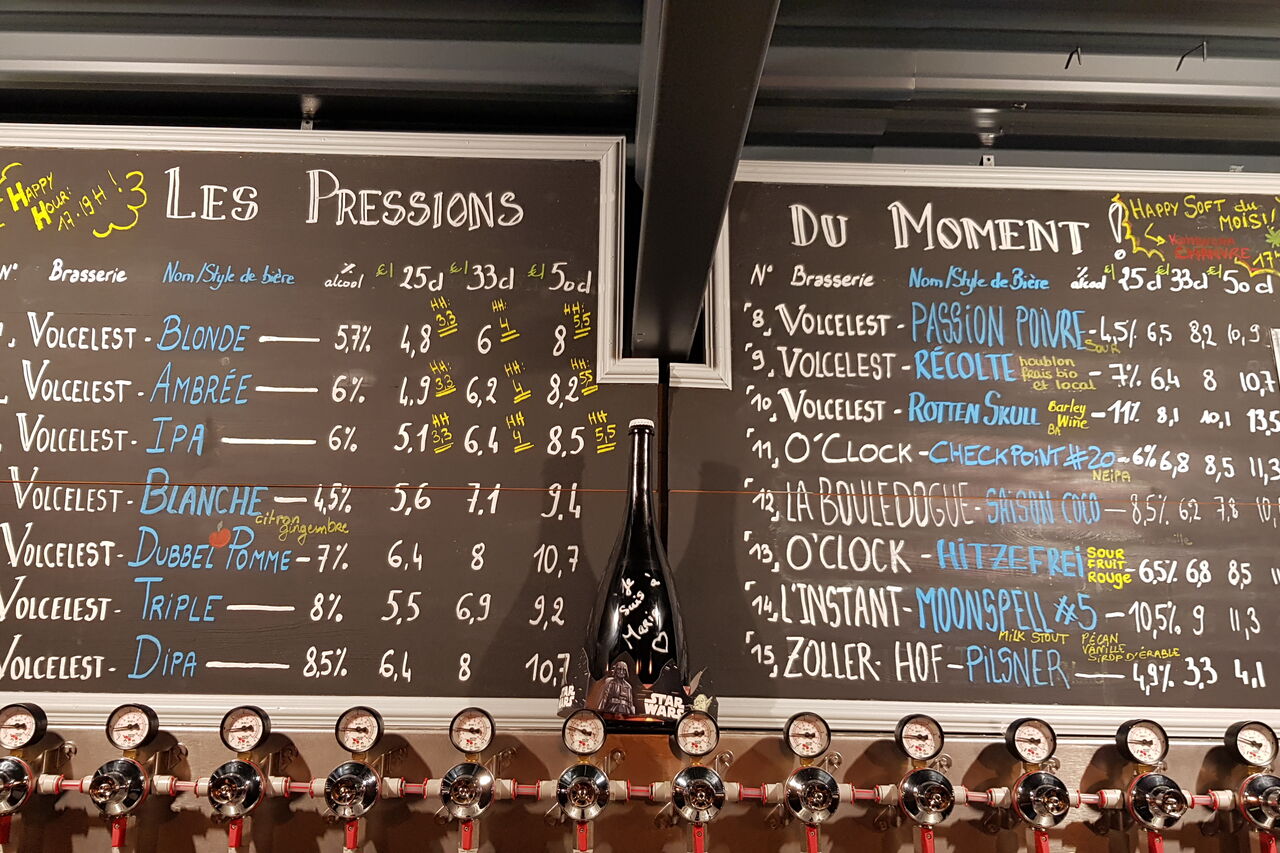 HAPPY HOUR! 17-19H!
LES PRESSIONS
N° Brasserie Nom/Style de bière % alcool 25cl 33cl 50cl
VOLCELEST - BLONDE 5,7% 4,8 HH: 3,3 6 HH: 4 8 HH: 5,5
VOLCELEST - AMBRÉE 6% 4,9 HH: 3,3 6,2 HH: 4 8,2 HH: 5,5
VOLCELEST - IPA 6% 5,1 HH: 3,3 6,4 HH: 4 8,5 HH: 5,5
VOLCELEST - BLANCHE 4,5% 5,6 7,1 9,4
citron gingembre
VOLCELEST - DUBBEL POMME - 7% 6,4 8 10,7
VOLCELEST - TRIPLE 8% 5,5 6,9 9,2
VOLCELEST - DIPA 8,5% 6,4 8 10,7
DU MOMENT!
HAPPY SOFT du MOIS!
N° Brasserie Nom/Style de Bière % alcool 25cl 33cl 50cl
8, VOLCELEST - PASSION POIVRE - 4,5% 6,5 8,2 10,9
SOUR
9, VOLCELEST - RÉCOLTE houblon frais bio et local - 7% 6,4 8 10,7
10, VOLCELEST - ROTTEN SKULL Barley Wine BA - 11% 8,1 10,1 13,5
11, O'CLOCK - CHECKPOINT #20 - 6% 6,8 8,5 11,3
NEIPA
12, LA BOULEDOGUE - SAISON COCO - 8,5% 6,2 7,8
13, O'CLOCK - HITZEFREI SOUR FRUIT ROUGE - 6,5% 6,8 8,5
14, L'INSTANT - MOONSPELL #5 - 10,5% 9 11,3
MILK STOUT PÉCAN VANILLE SIROP D'ÉRABLE
15, ZOLLER-HOF - PILSNER 4,9% 3,3 4,1
Je suis Marie
STAR WARS